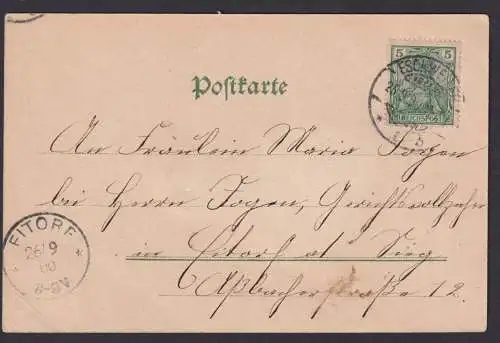 5 5
REICHSPOST
ESCHWE
Postkarte
An Fräulein Maria Fogen
bei Herrn Fogen, Gerichtsvollzieher
in Eitorf at Sieg
Aßbacherstraße 12.
EITORF
26/9
00
8-9V